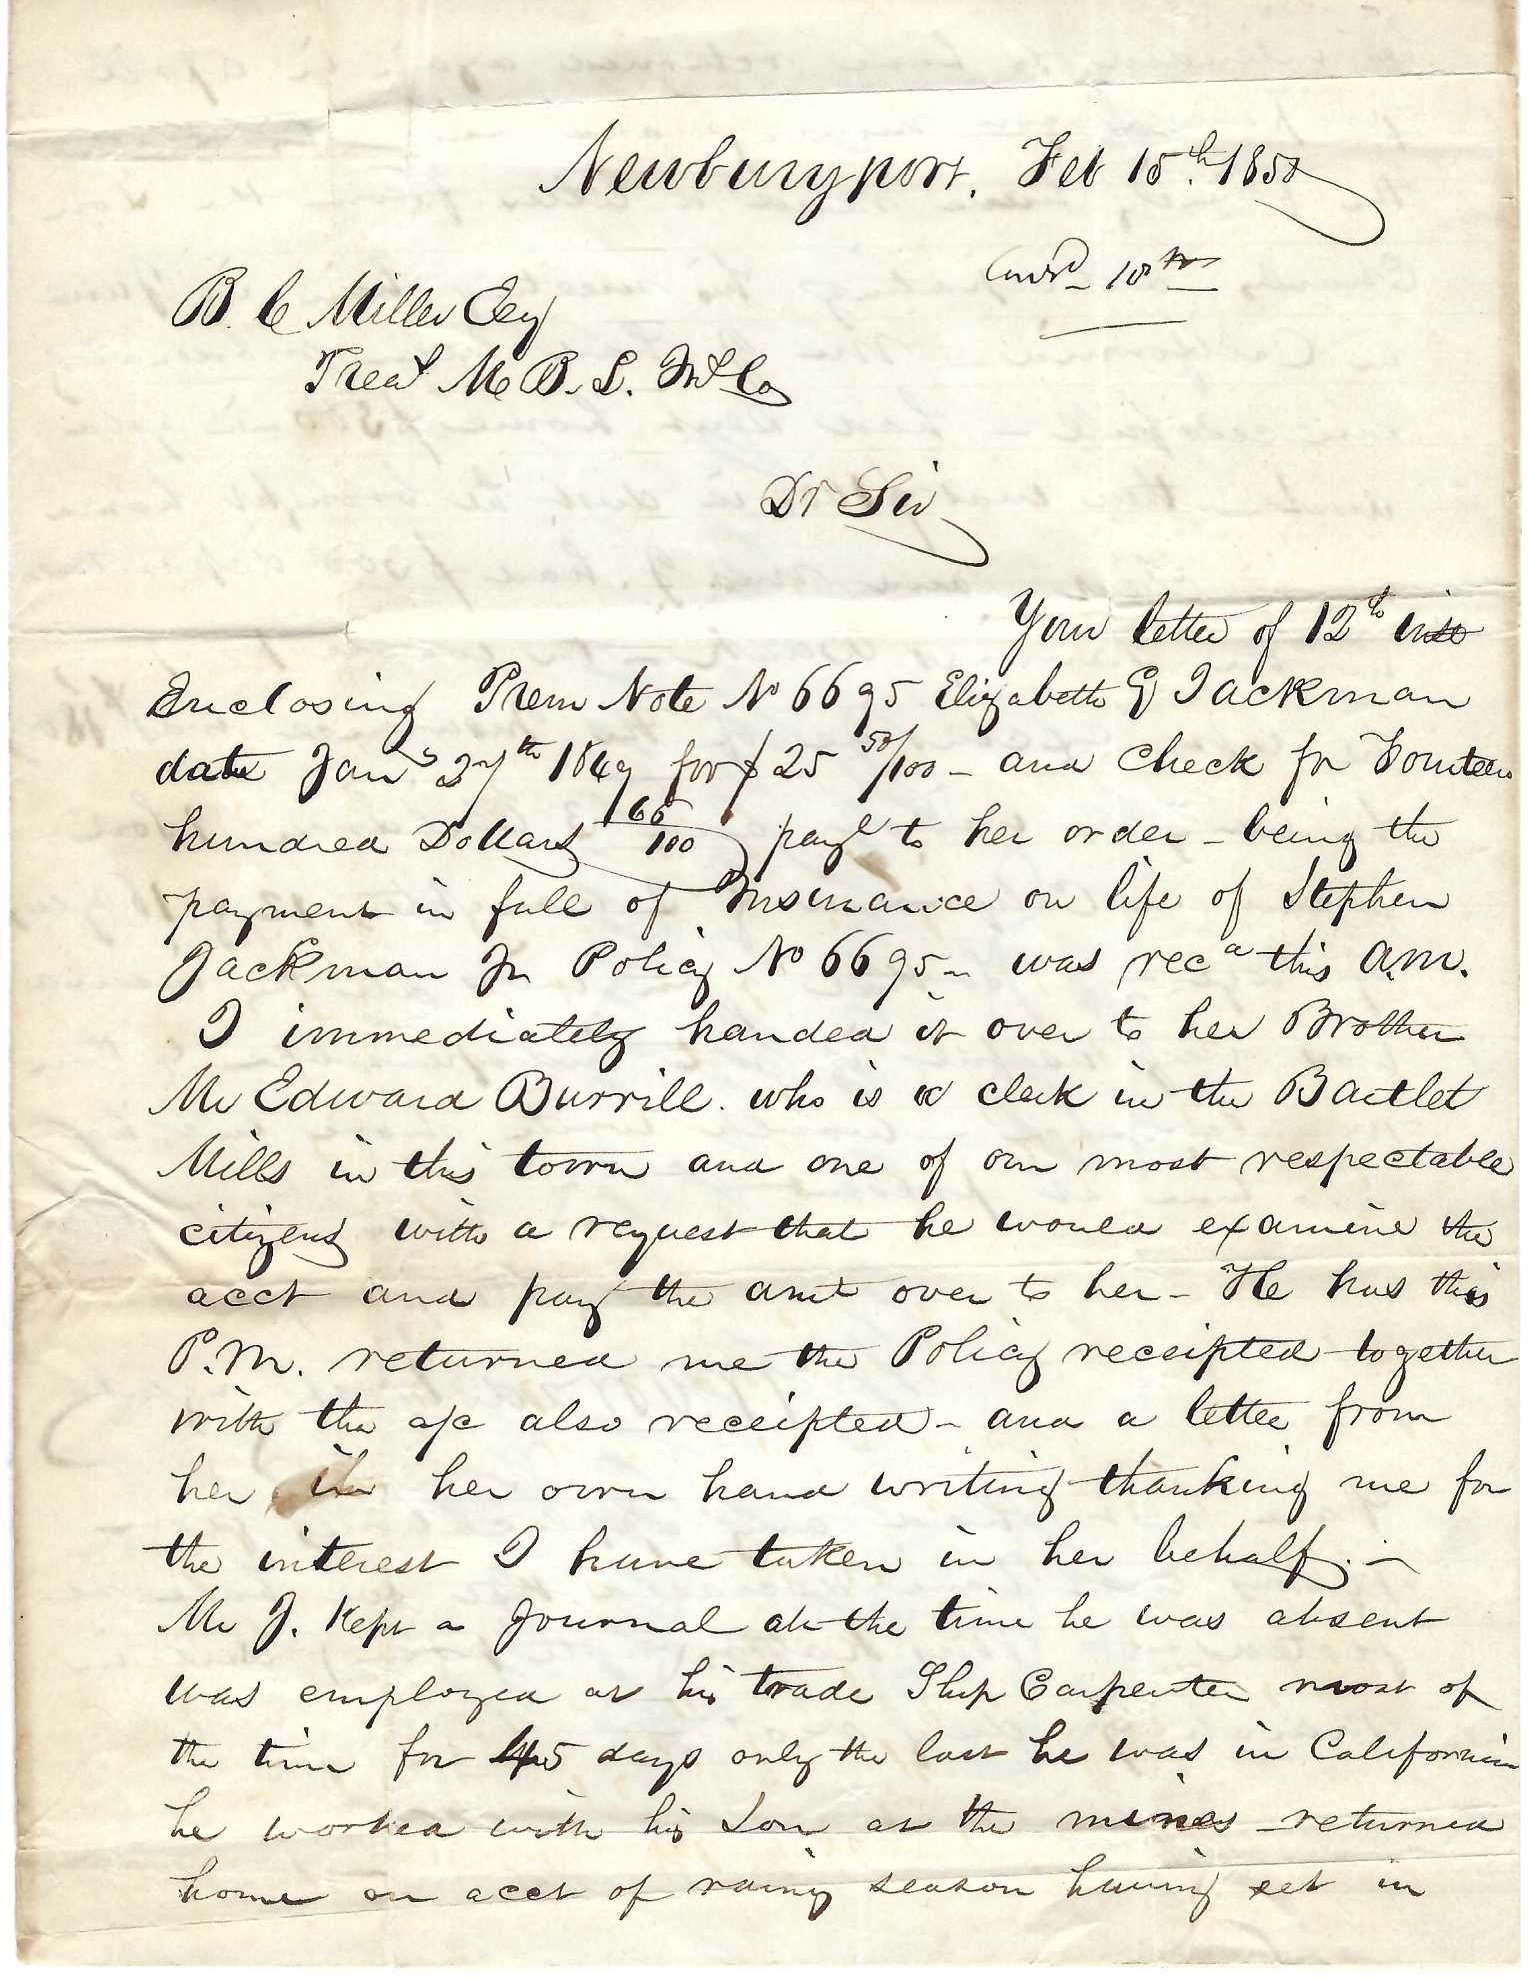 Newburyport. Feb 15th. 1850
Answd - 18th
B. C Miller Esq
Treas M B. L. Ins Co
Dr Sir
Your letter of 12th inst
Enclosing Prem Note No 6695 Elizabeth G Jackman
date Jany 27th 1849 for $25 50/100 - and Check for Fourteen
hundred Dollars 66/100 payl to her order - being the
payment in full of Insurance on life of Stephen
Jackman Jr Policy No 6695 - was recd this A.M.
I immediately handed it over to her Brother
Mr Edward Burrill. who is a clerk in the Bartlet
Mills in this town and one of our most respectable
citizens with a request that he would examine the
acct and pay the amt over to her - He has this
P.M. returned me the Policy receipted together
with the a/c also receipted - and a letter from
her in her own hand writing thanking me for
the interest I have taken in her behalf. -
Mr J. Kept a Journal all the time he was absent
was employed at his trade Ship Carpenter most of
the time for 45 days only the last he was in California
he worked with his Son at the mines - returned
home on acct of rainy season having set in